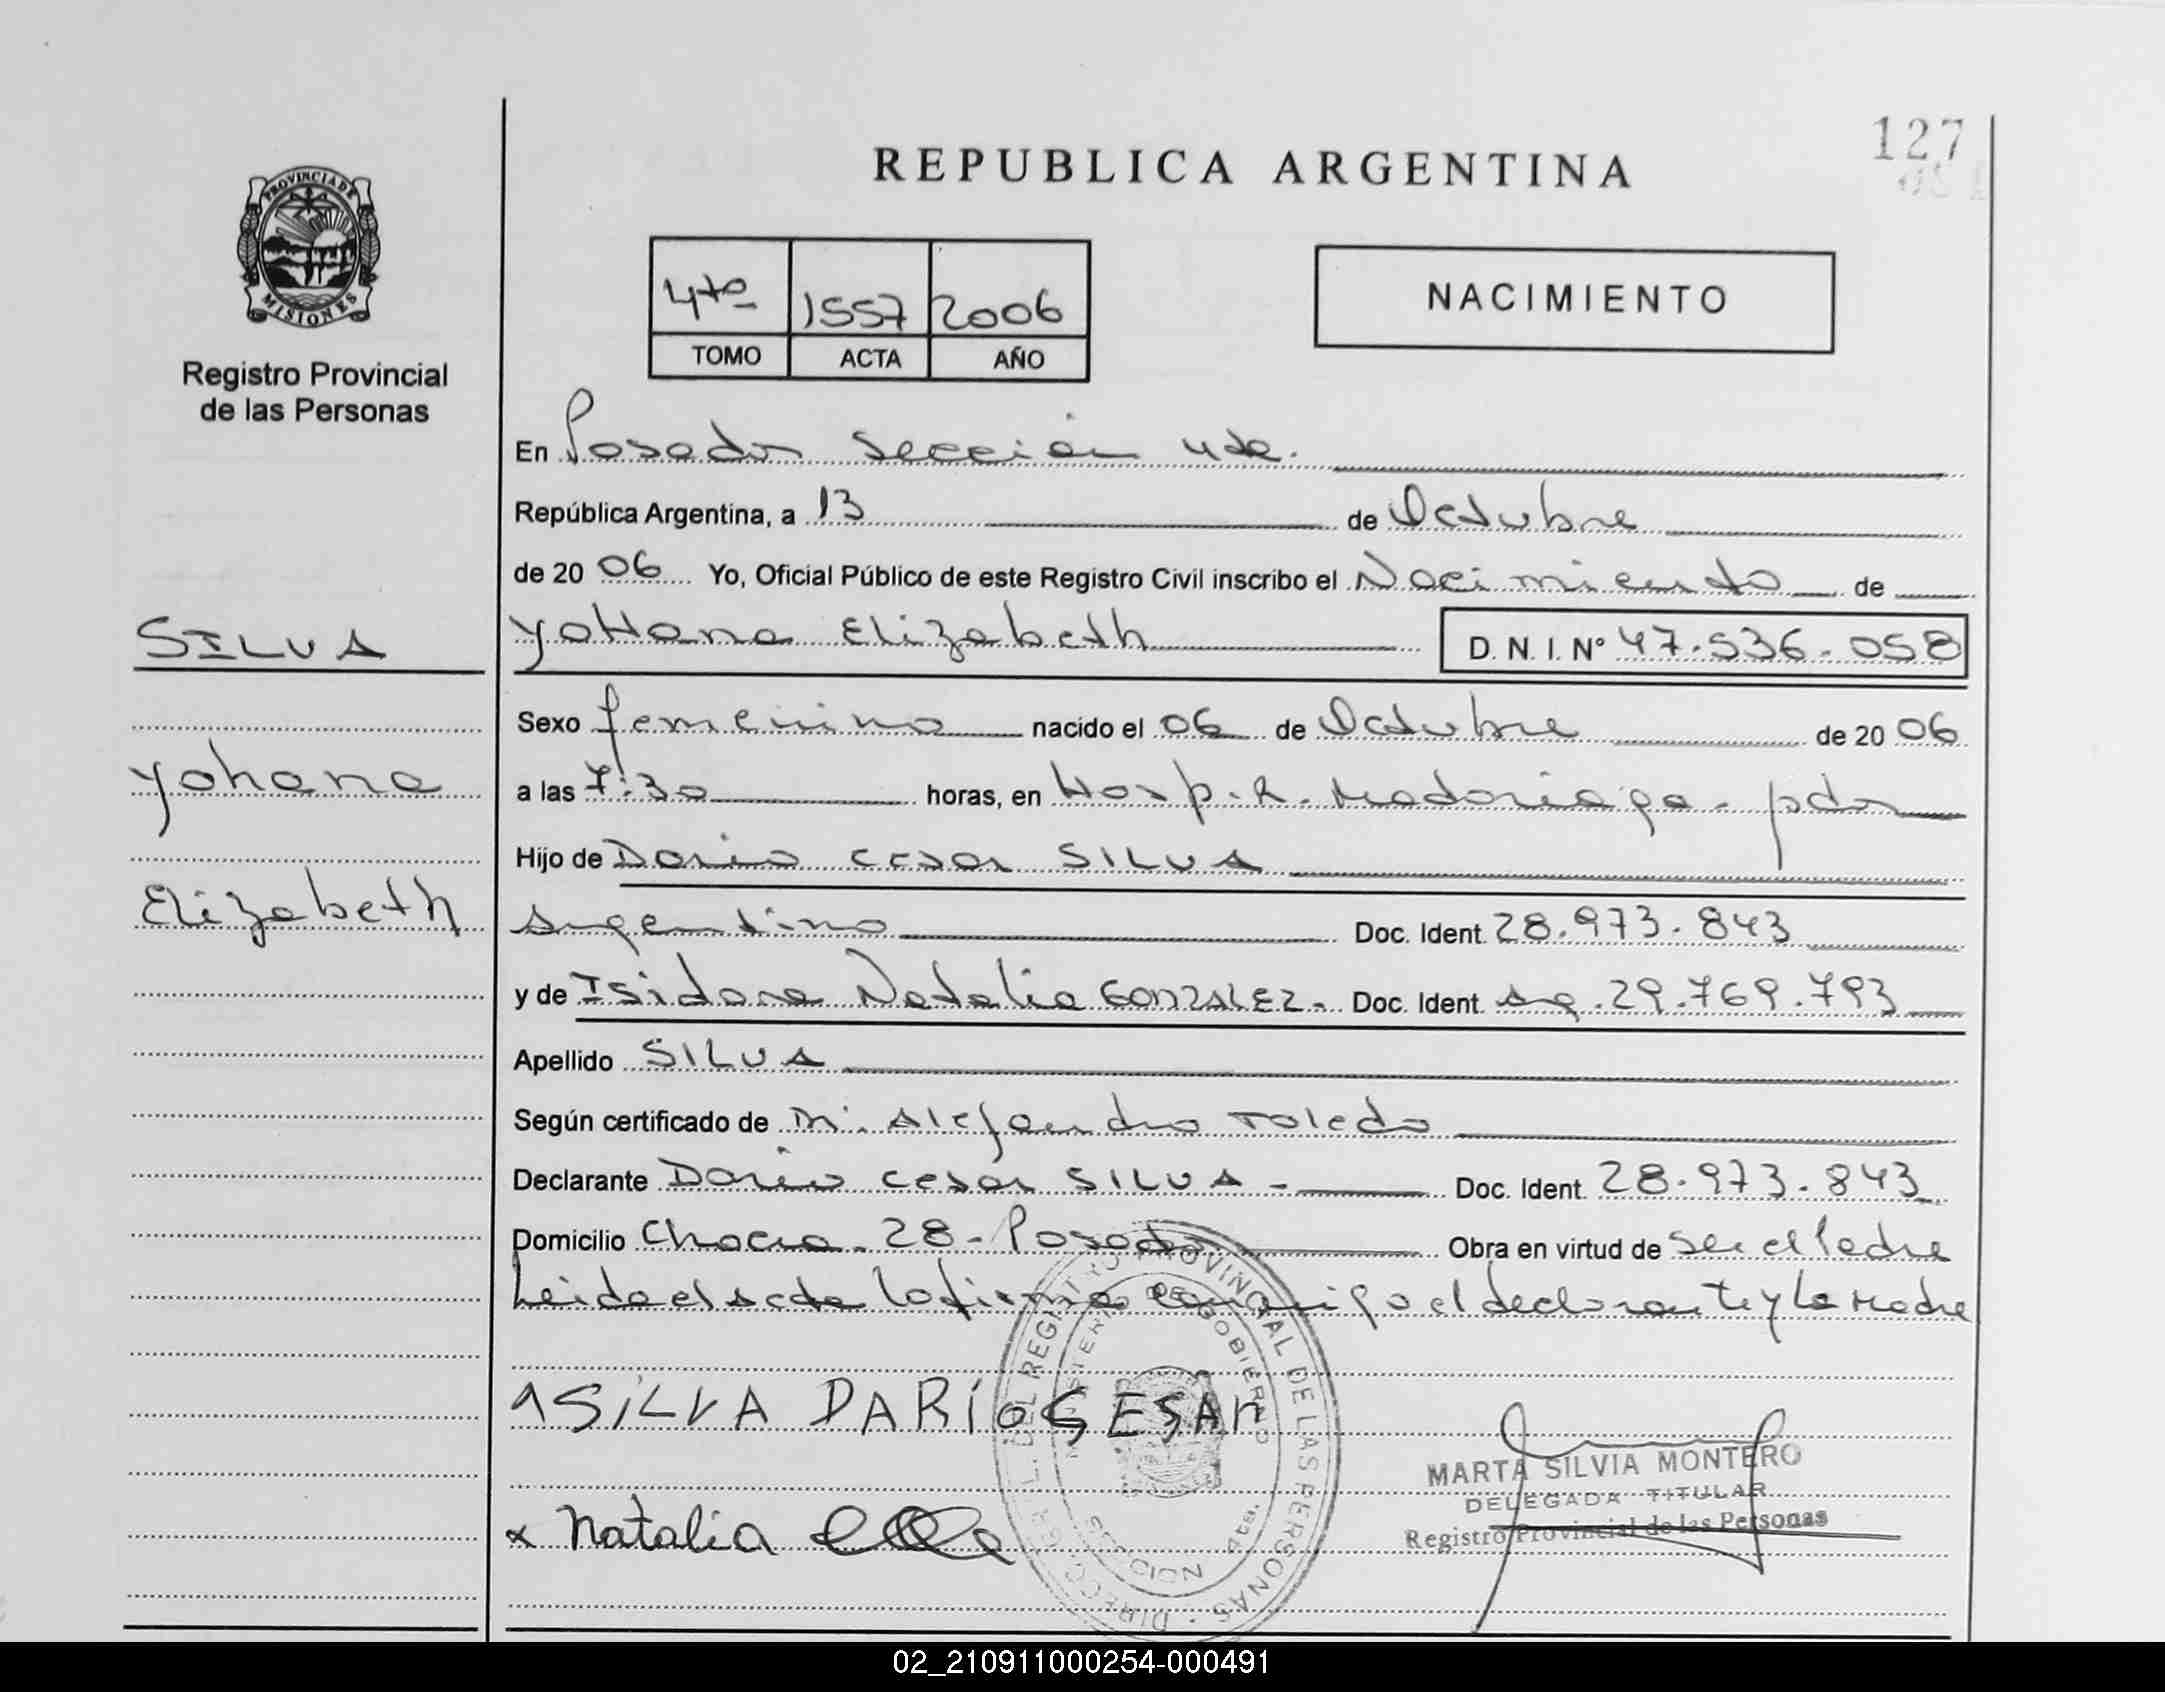 127
REPUBLICA ARGENTINA
PROVINCIA DE
MISIONES
Registro Provincial
de las Personas
4to 1557 2006
TOMO ACTA AÑO
NACIMIENTO
En Posadas Sección 4ta.
República Argentina, a 13 de Octubre
de 20 06 Yo, Oficial Público de este Registro Civil inscribo el Nacimiento de
SILVA
YoHana Elizabeth D. N. I. N° 47.536.058
Sexo femenino nacido el 06 de Octubre de 20 06
Yohana
a las 7:30 horas, en Hosp. R. Madariaga - pdas
Hijo de Dario Cesar SILVA
Elizabeth
Argentino Doc. Ident. 28.973.843
y de Isidora Natalia GONZALEZ - Doc. Ident. Ag. 29.769.793
Apellido SILVA
Según certificado de M. Alejandro Toledo
Declarante Dario Cesar SILVA - Doc. Ident. 28.973.843
Domicilio Chacra 28 - Posadas Obra en virtud de Ser el Padre
Leida el Acta la firma conmigo el declarante y la Madre
SILVA DARÍO CESAR
x Natalia
DIRECC. GRAL. DEL REGISTRO PROVINCIAL DE LAS PERSONAS
MINISTERIO DE GOBIERNO
SECCION 4ta.
MARTA SILVIA MONTERO
DELEGADA TITULAR
Registro Provincial de las Personas
02_210911000254-000491